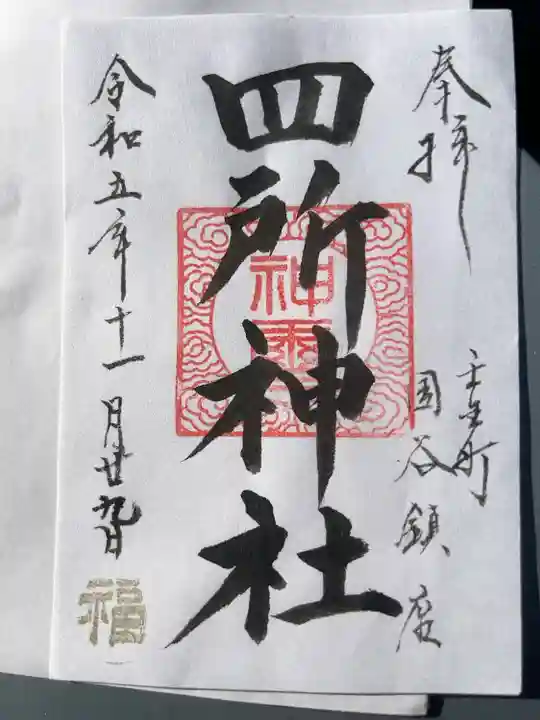 奉拝
壬生町
国谷鎮座
四所神社
神璽
令和五年十一月廿九日
福